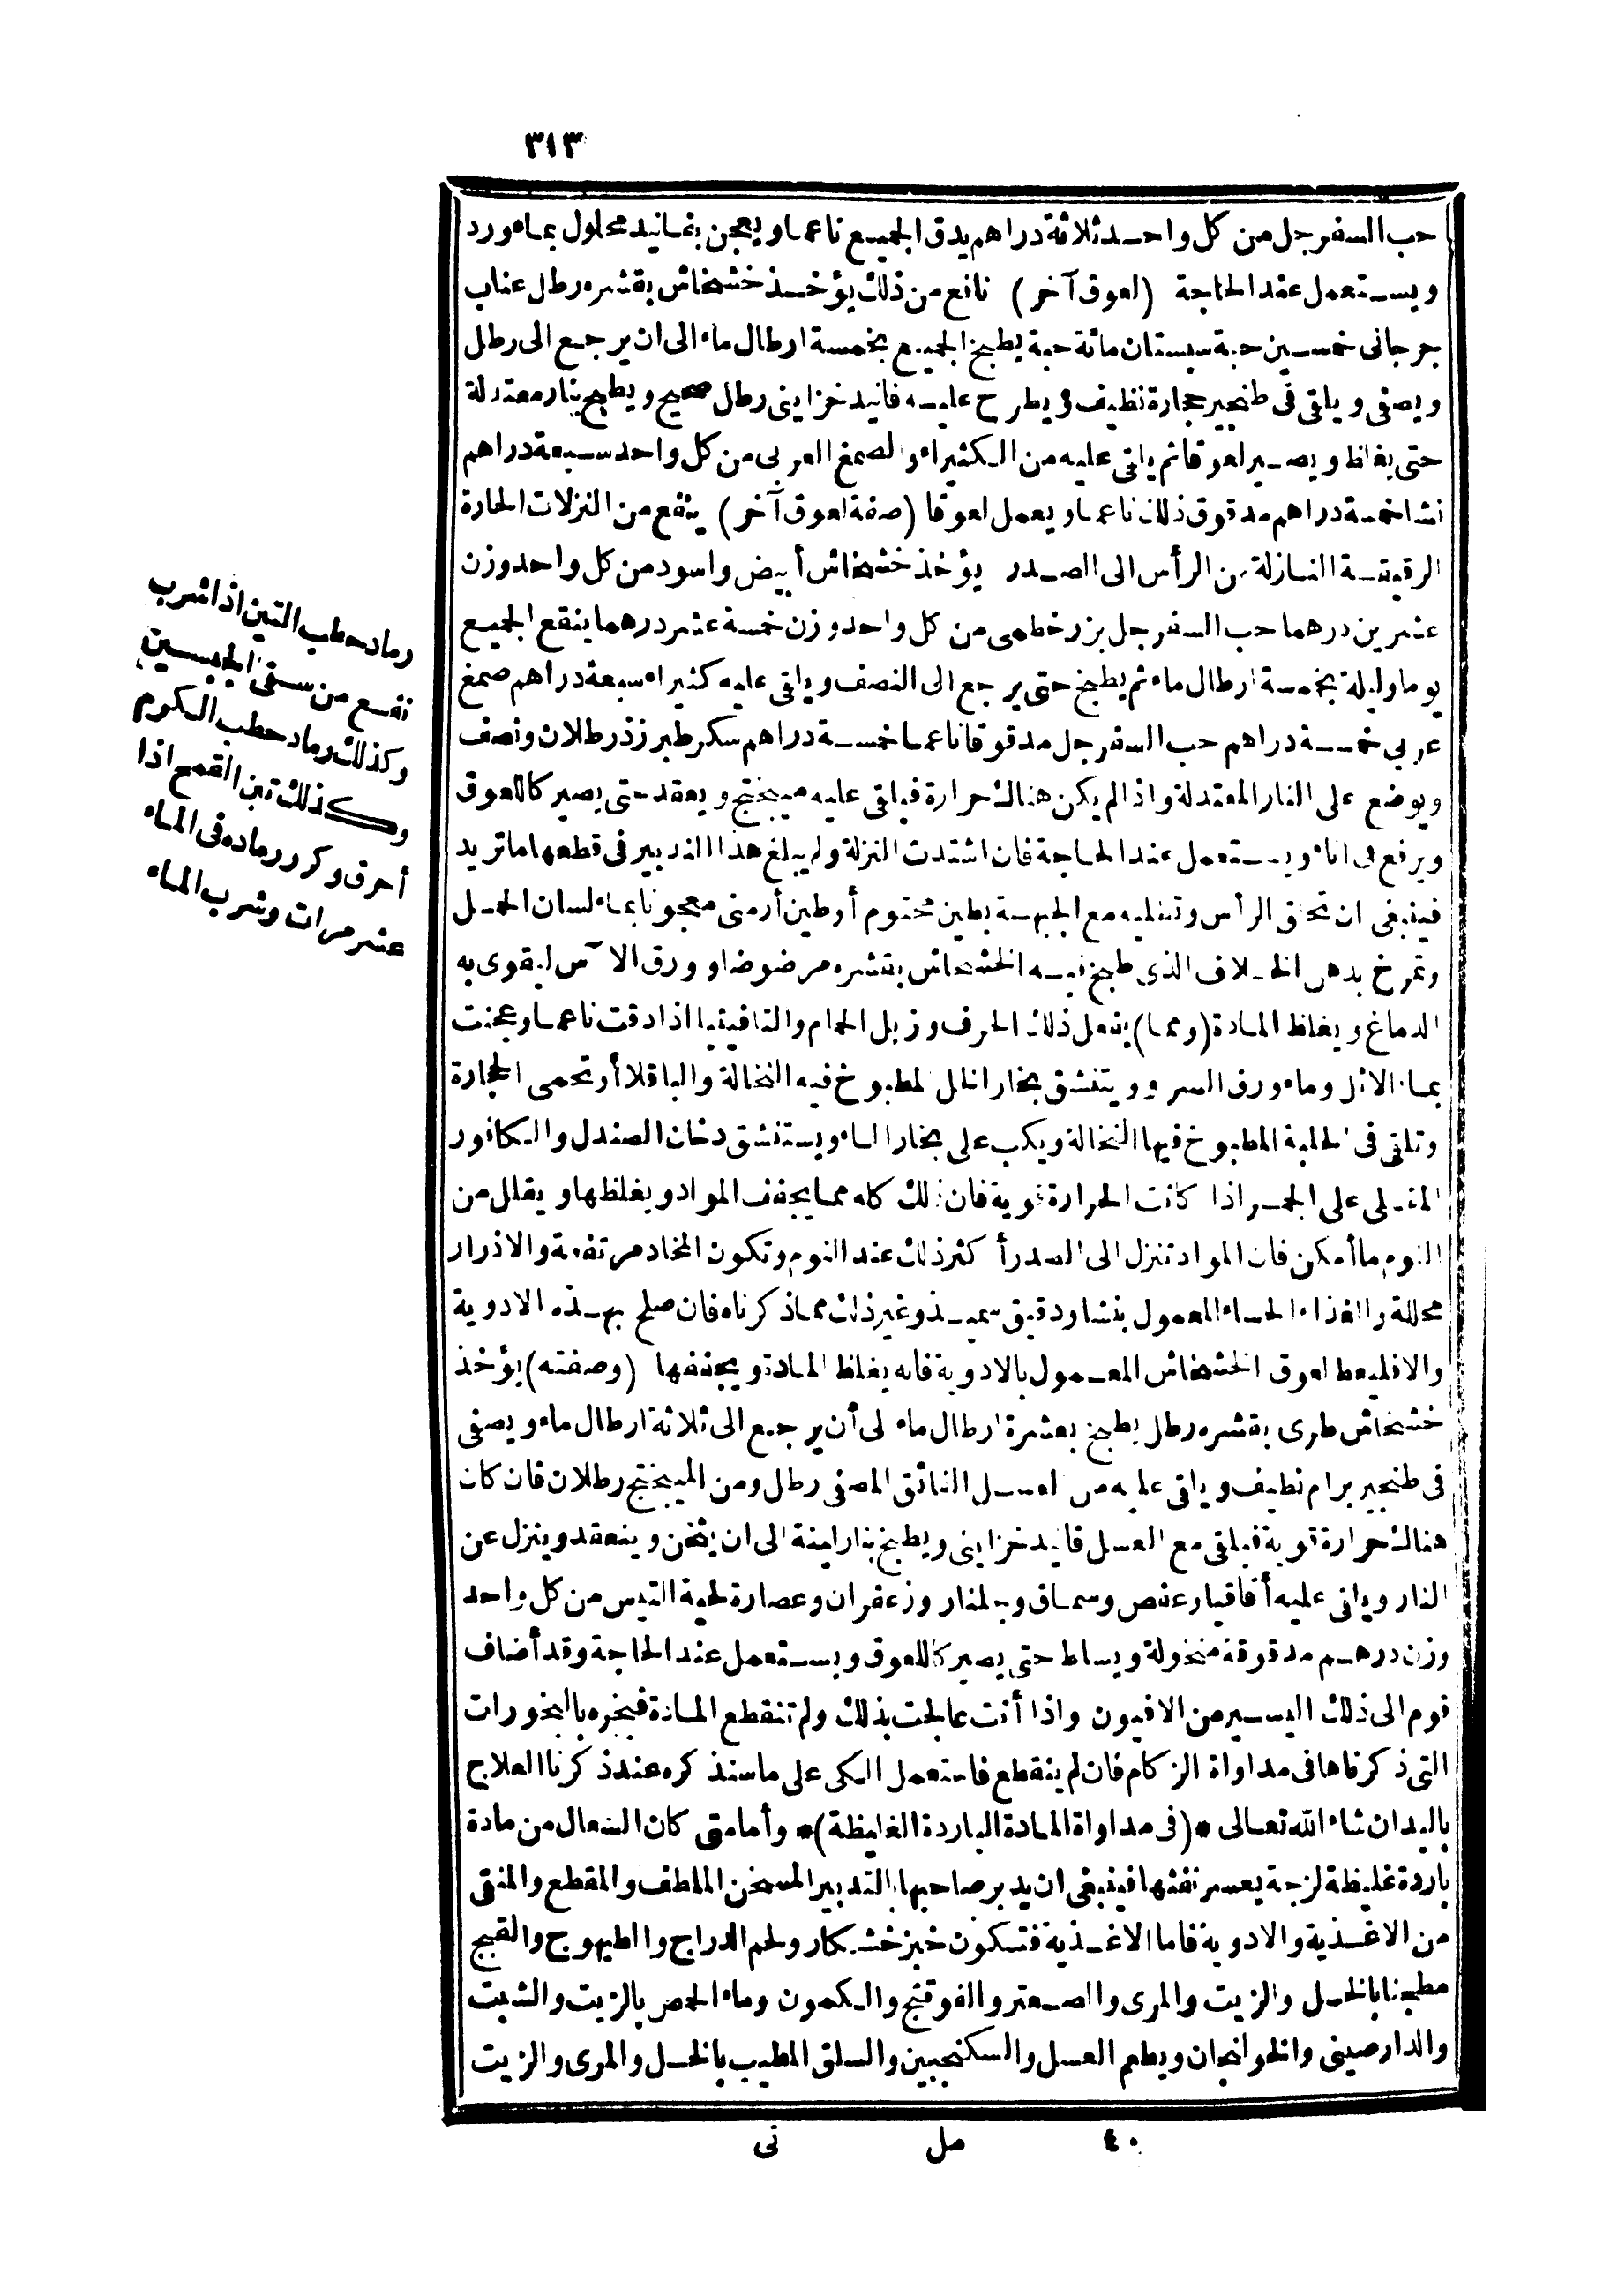 ٣١٣
حب السفرجل من كل واحد ثلاثة دراهم يدق الجميع ناعما ويعجن بفانيذ محلول بماء ورد
ويستعمل عند الحاجة (لعوق آخر) نافع من ذلك يؤخذ خشخاش بقشره رطل عناب
جرجانى خمسين حبة سبستان مائة حبة يطبخ الجميع بخمسة ارطال ماء الى ان يرجع الى رطل
ويصفى ويلقى فى طنجير حجارة نظيف ويطرح عليه فانيد خزاينى رطل صحيح ويطبخ بنار معتدلة
حتى يغلظ ويصير لعوقا ثم يلقى عليه من الكثيراء والصمغ العربى من كل واحد سبعة دراهم
نشا خمسة دراهم مدقوق ذلك ناعما ويعمل لعوقا (صفة لعوق آخر) ينفع من النزلات الحارة
الرقيقة النازلة من الرأس الى الصدر يؤخذ خشخاش أبيض واسود من كل واحد وزن
عشرين درهما حب السفرجل بزر خطمى من كل واحد وزن خمسة عشر درهما ينقع الجميع
يوما وليلة بخمسة ارطال ماء ثم يطبخ حتى يرجع الى النصف ويلقى عليه كثيراء سبعة دراهم صمغ
عربي خمسة دراهم حب السفرجل مدقوقا ناعما خمسة دراهم سكر طبرزذ رطلان ونصف
ويوضع على النار المعتدلة واذا لم يكن هناك حرارة فيلقى عليه ميبختج ويعقد حتى يصير كاللعوق
ويرفع فى اناء ويستعمل عند الحاجة فان اشتدت النزلة ولم يبلغ هذا التدبير فى قطعها ما تريد
فينبغى ان تحلق الرأس وتطليه مع الجبهة بطين مختوم أو طين أرمنى معجونا بماء لسان الحمل
وتمرخ بدهن الخلاف الذى طبخ فيه الخشخاش بقشره مرضوضا او ورق الآس ليقوى به
الدماغ ويغلظ المادة (ومما) يفعل ذلك الحرف وزبل الحمام والتافيسيا اذا دقت ناعما وعجنت
بماء الاثل وماء ورق السرو ويتنشق بخار الخل المطبوخ فيه النخالة والباقلا أو تحمى الحجارة
وتلقى فى الحلبة المطبوخ فيها النخالة ويكب على بخار الماء ويستنشق دخان الصندل والكافور
الملقى على الجمر اذا كانت الحرارة قوية فان ذلك كله مما يجفف المواد ويغلظها ويقلل من
النوم ما أمكن فان المواد تنزل الى الصدر أكثر ذلك عند النوم وتكون المخاد مرتفعة والازرار
محللة والغذاء الحساء المعمول بنشا ودقيق سميذ وغير ذلك مما ذكرناه فان صلح بهذه الادوية
والا فليعط لعوق الخشخاش المعمول بالادوية فانه يغلظ المادة ويجففها (وصفته) يؤخذ
خشخاش طرى بقشره رطل يطبخ بعشرة ارطال ماء الى أن يرجع الى ثلاثة ارطال ماء ويصفى
فى طنجير برام نظيف ويلقى عليه من العسل الفائق المصفى رطل ومن الميبختج رطلان فان كان
هناك حرارة قوية فيلقى مع العسل فانيد خزاينى ويطبخ بنار لينة الى ان يثخن وينعقد وينزل عن
النار ويلقى عليه أقاقيا وعفص وسماق وجلنار وزعفران وعصارة لحية التيس من كل واحد
وزن درهم مدقوقة منخولة ويساط حتى يصير كاللعوق ويستعمل عند الحاجة وقد أضاف
قوم الى ذلك اليسير من الافيون واذا أنت عالجت بذلك ولم تنقطع المادة فبخره بالبخورات
التى ذكرناها فى مداواة الزكام فان لم ينقطع فاستعمل الكى على ما سنذكره عند ذكرنا العلاج
باليد ان شاء الله تعالى *(فى مداواة المادة الباردة الغليظة)* وأما متى كان السعال من مادة
باردة غليظة لزجة يعسر نفثها فينبغى ان يدبر صاحبها بالتدبير المسخن الملطف والمقطع والمنقى
من الاغذية والادوية فاما الاغذية فتكون خبز خشكار ولحم الدراج والطيهوج والقبج
مطجنا بالخل والزيت والمرى والصعتر والفوتنج والكمون وماء الحمص بالزيت والشبت
والدارصينى والخولنجان ويطعم العسل والسكنجبين والسلق المطيب بالخل والمرى والزيت
رماد حطب التين اذا شرب
نفع من سقى الجبسين
وكذلك رماد حطب الكرم
وكذلك تبن القمح اذا
أحرق وكرر رماده فى الماء
عشر مرات وشرب الماء
٤٠ مل نى